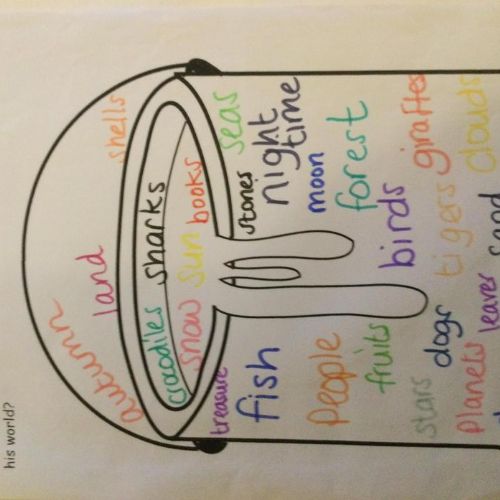 his world?
autumn land shells
crocodiles sharks
snow sun books
treasure stones seas
fish night
time
people moon
fruits forest
birds
stars dogs tigers giraffes
planets leaves sand clouds